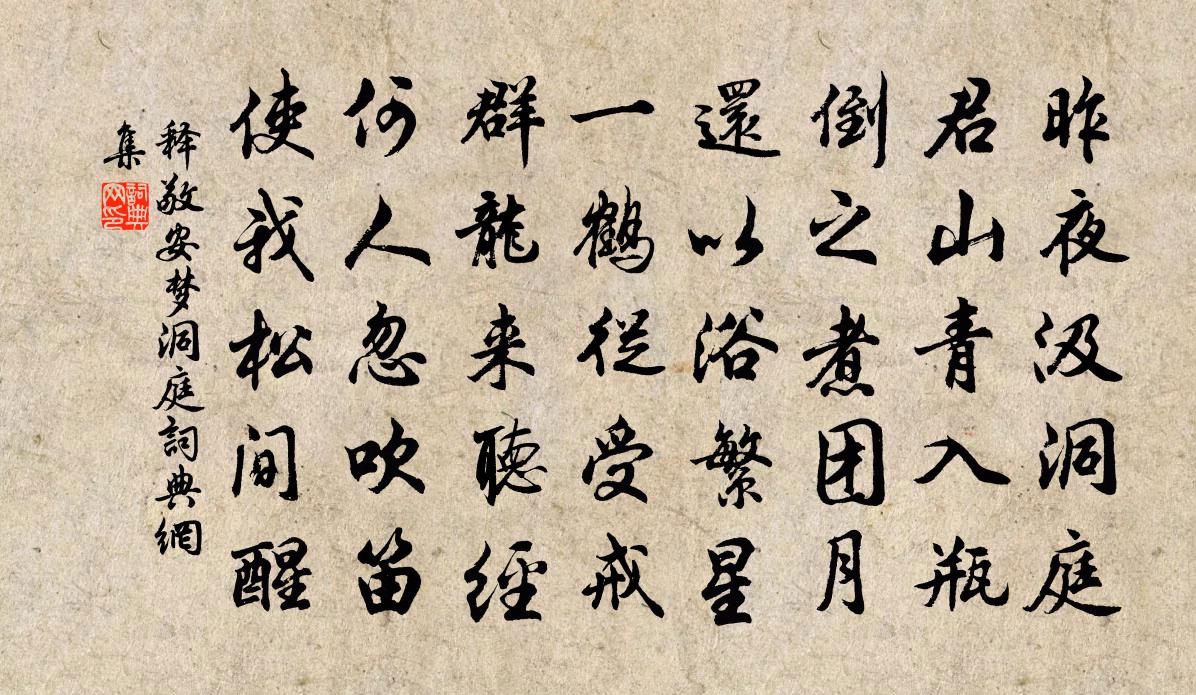 昨夜汲洞庭
君山青入瓶
倒之煮团月
還以浴繁星
一鶴從受戒
群龍来聽經
何人忽吹笛
使我松间醒
释敬安梦洞庭詞典網
集
詞典
网印